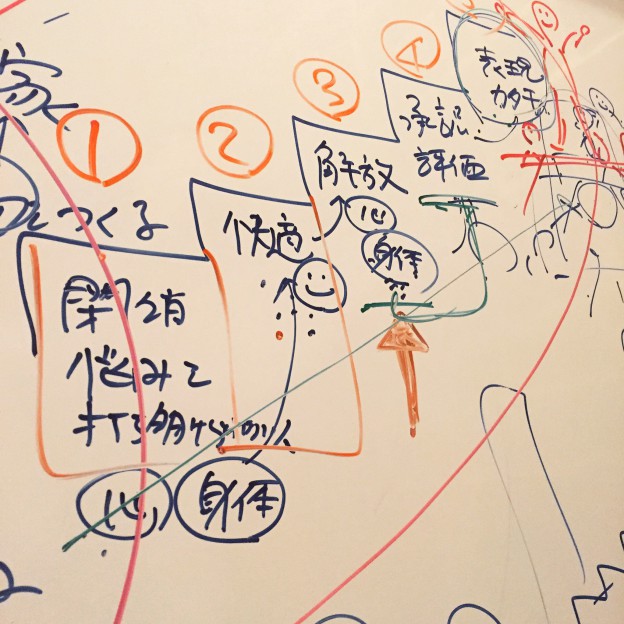 家
つくる
①
閉鎖
悩みを
打ち明けられ
心
身体
②
快適
③
解放
心
身体
④
承認
評価
表現
カタチ